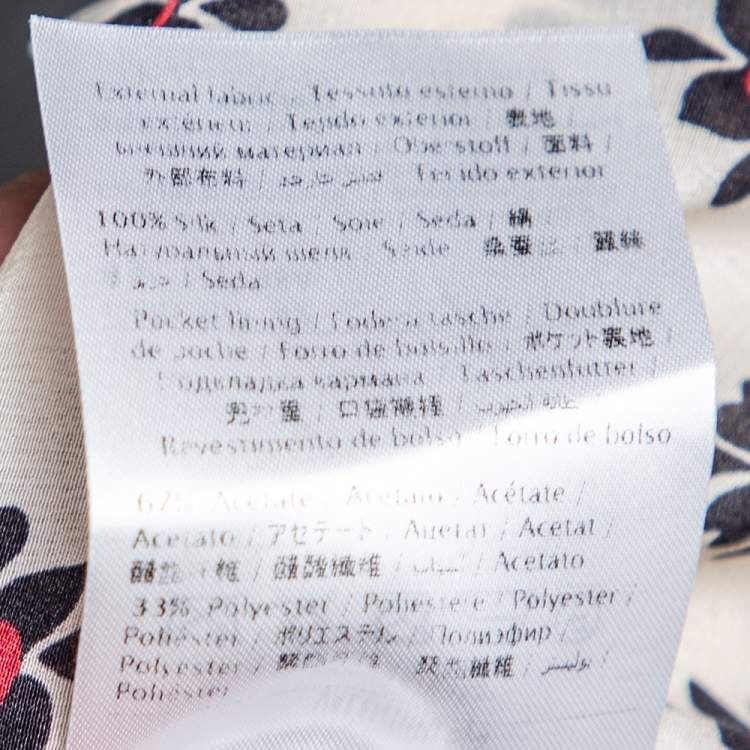 External fabric / Tessuto esterno / Tissu
extérieur / Tejido exterior / 表地 /
внешний материал / Oberstoff / 面料 /
外部布料 / قماش خارجي / Tecido exterior
100% Silk / Seta / Soie / Seda / 絹 /
Натуральный шелк / Seide / 桑蚕丝 / 蠶絲
/ حرير / Seda
Pocket lining / Fodera tasche / Doublure
de poche / Forro de bolsillo / ポケット裏地 /
Подкладка кармана / Taschenfutter /
兜布里 / 口袋襯裡 / بطانة الجيوب /
Revestimento de bolso / Forro de bolso
67% Acetate / Acetato / Acétate /
Acetato / アセテート / Ацетат / Acetat /
醋酯纤维 / 醋酸纖維 / أسيتات / Acetato
33% Polyester / Poliestere / Polyester /
Poliéster / ポリエステル / Полиэфир /
Polyester / 聚酯纤维 / 聚酯纖維 / بوليستر /
Poliéster